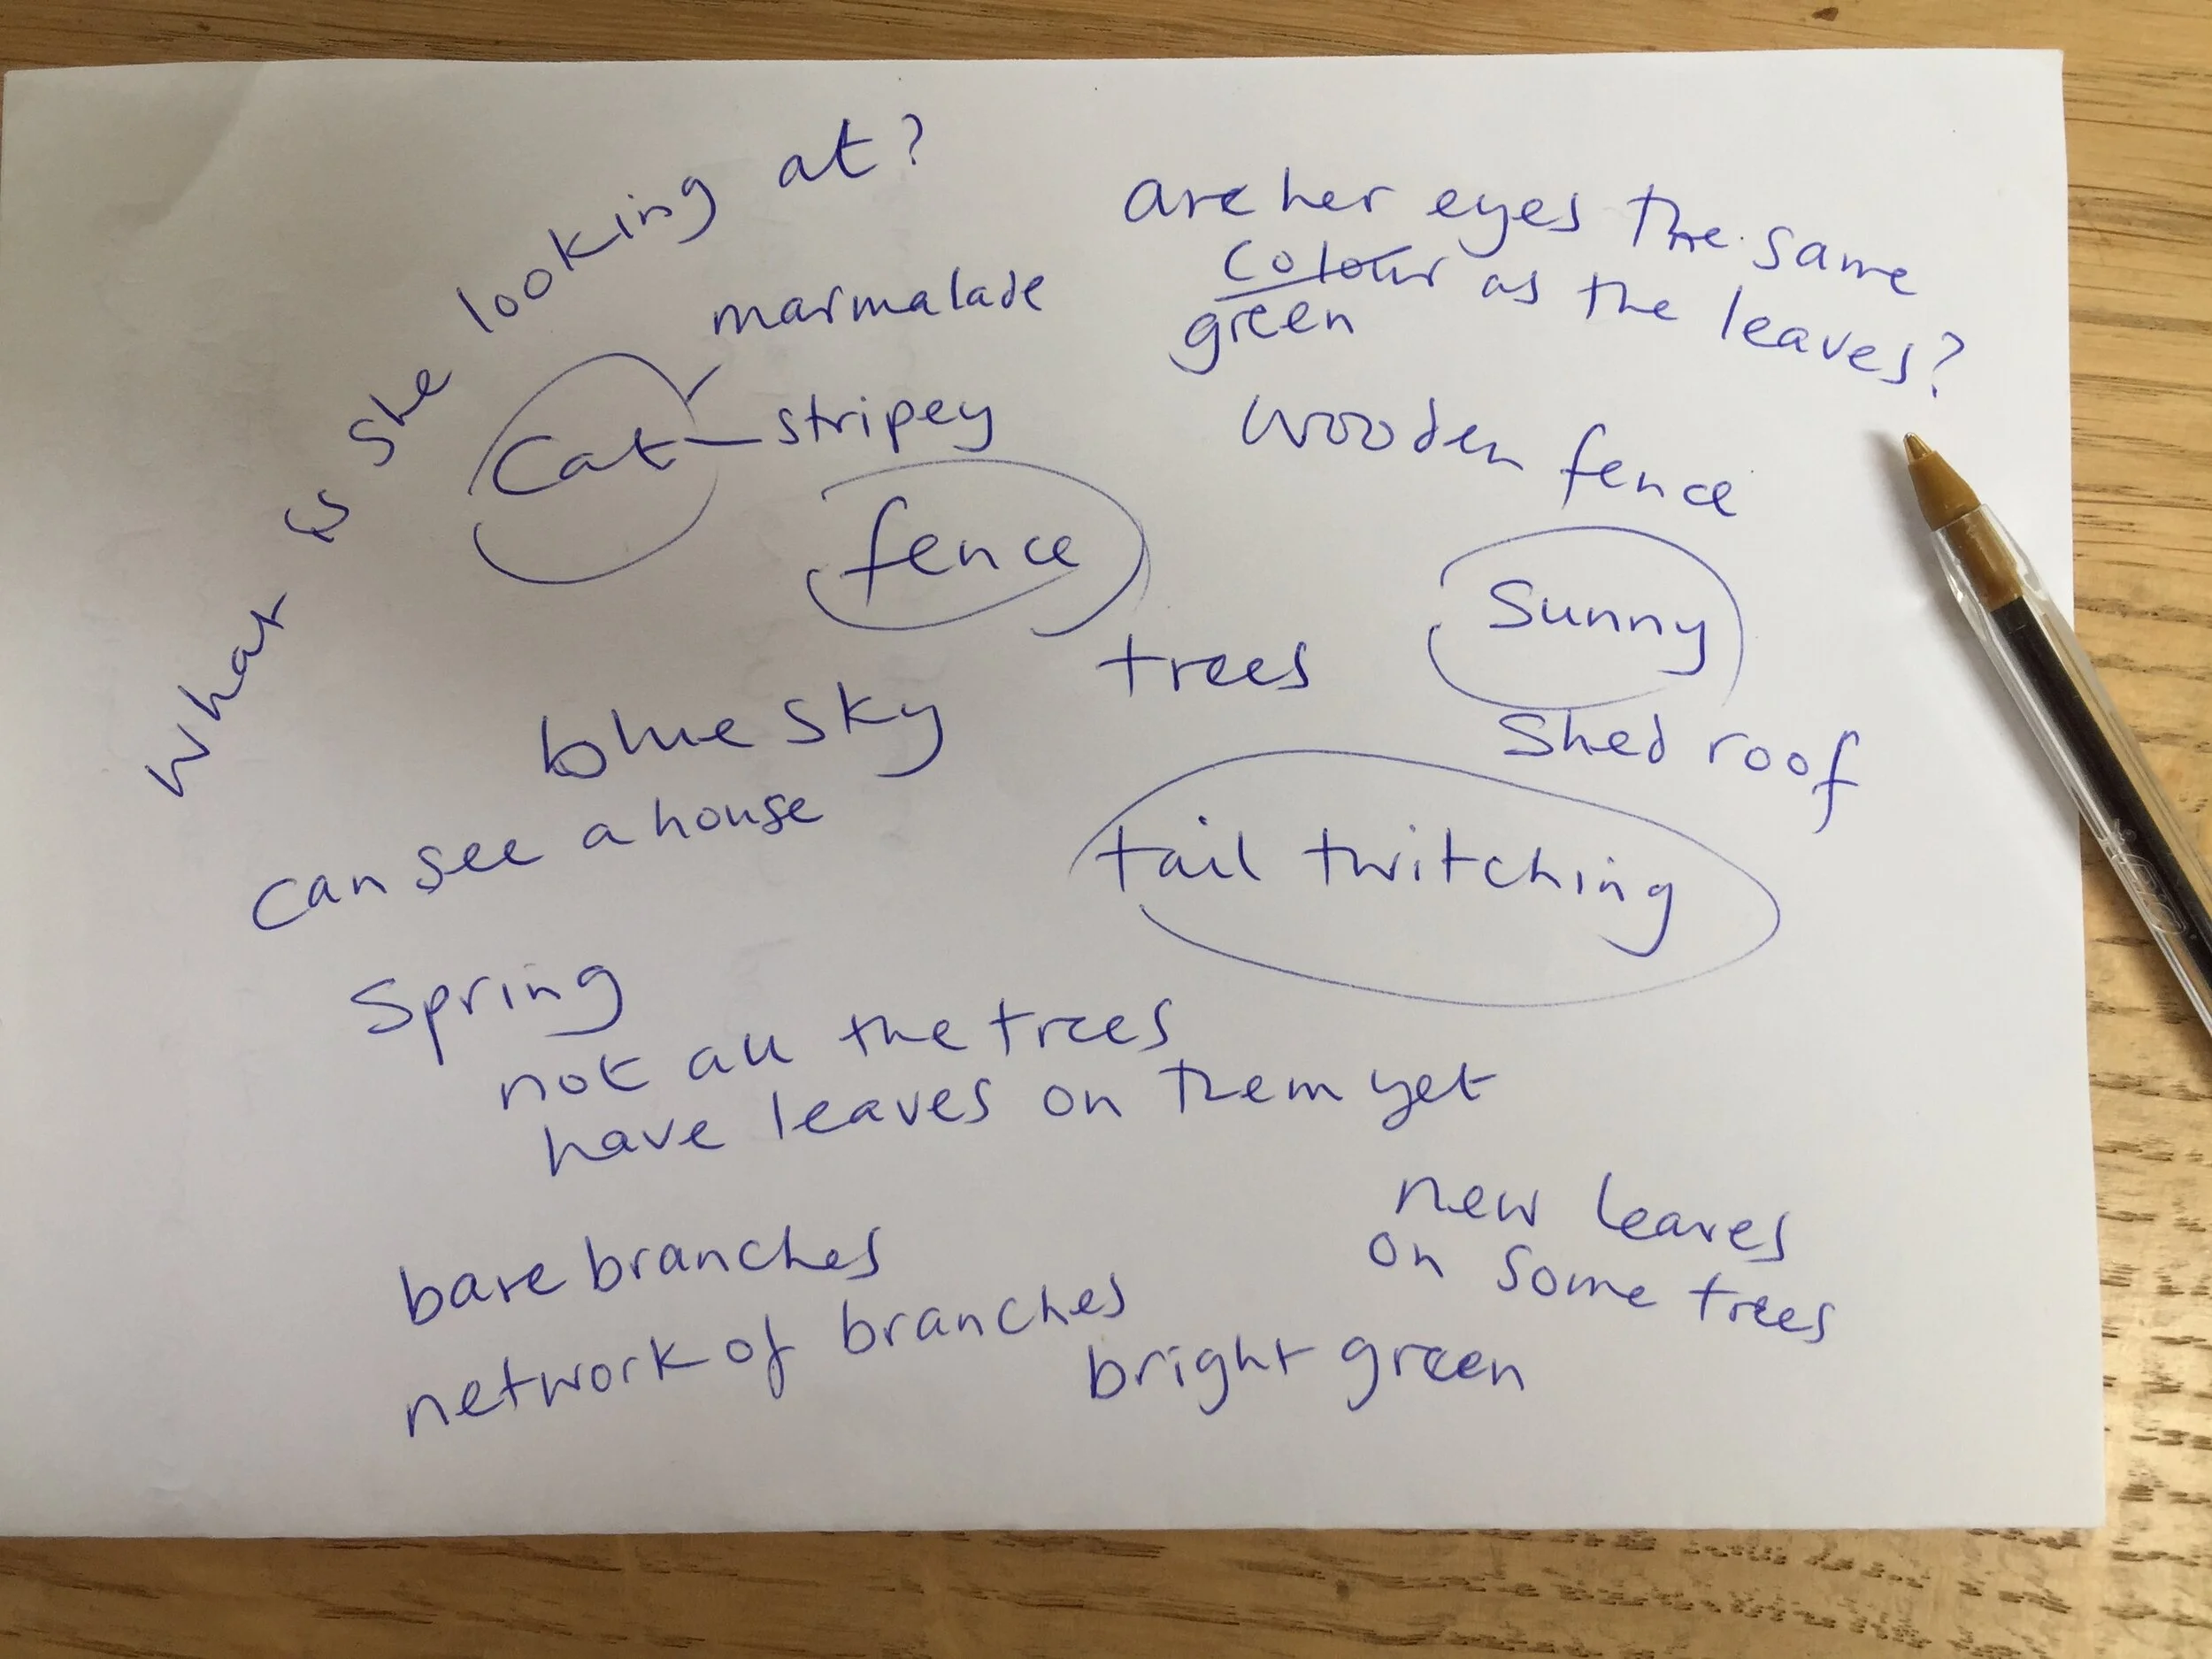 What is she looking at?
are her eyes the same
colour as the leaves?
green
marmalade
cat
stripey
wooden fence
fence
sunny
trees
blue sky
shed roof
can see a house
tail twitching
Spring
not all the trees
have leaves on them yet
new leaves
on some trees
bare branches
network of branches
bright green